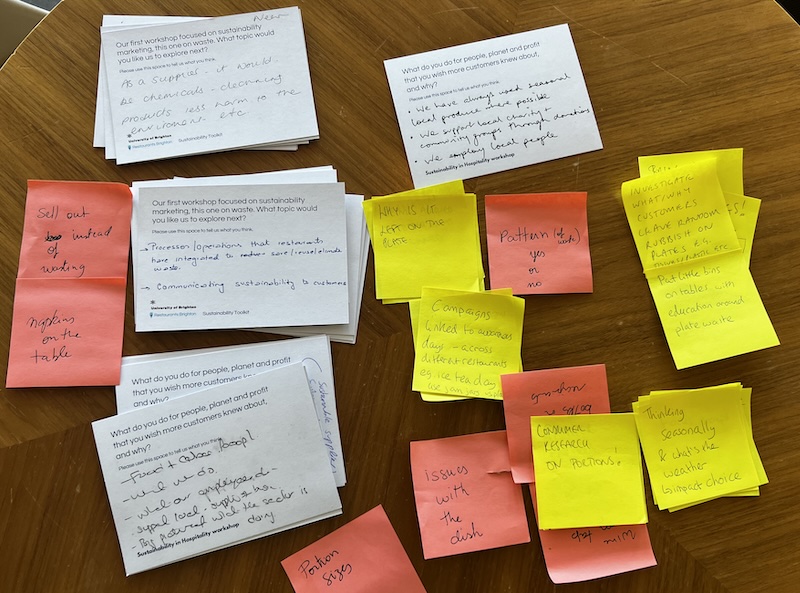 Our first workshop focused on sustainability
marketing, this one on waste. What topic would
you like us to explore next?
Please use this space to tell us what you think.
As a supplier - it would
be chemicals - cleaning
products less harm to the
environment etc
University of Brighton
Restaurants Brighton Sustainability Toolkit
What do you do for people, planet and profit
that you wish more customers knew about,
and why?
Please use this space to tell us what you think.
• We have always used seasonal
local produce where possible
• We support local charity +
community groups through donations
• We employ local people
Sustainability in Hospitality workshop
Sell out
instead
of
wasting
napkins
on the
table
Our first workshop focused on sustainability
marketing, this one on waste. What topic would
you like us to explore next?
Please use this space to tell us what you think.
operations that restaurants
have integrated to
waste.
→ Communicating sustainability to customers
University of Brighton
Restaurants Brighton Sustainability Toolkit
WHY IS IT
LEFT ON THE
PLATE
Pattern (of waste)
yes
or
no
INVESTIGATE
WHAT/WHY
CUSTOMERS
LEAVE RANDOM
RUBBISH ON
PLATES E.G.
Put little bins
on tables with
education around
plate waste
Campaigns
linked to awareness
days - across
different restaurants
eg ice tea day
What do you do for people, planet and profit
that you wish more customers knew about,
and why?
Sustainable suppliers
What do you do for people, planet and profit
that you wish more customers knew about,
and why?
Please use this space to tell us what you think.
- what we do.
- what our
Sustainability in Hospitality workshop
CONSUMER
RESEARCH
ON PORTIONS!
Thinking
seasonally
& what's the
weather
to impact choice
issues
with
the
dish
Portion
sizes